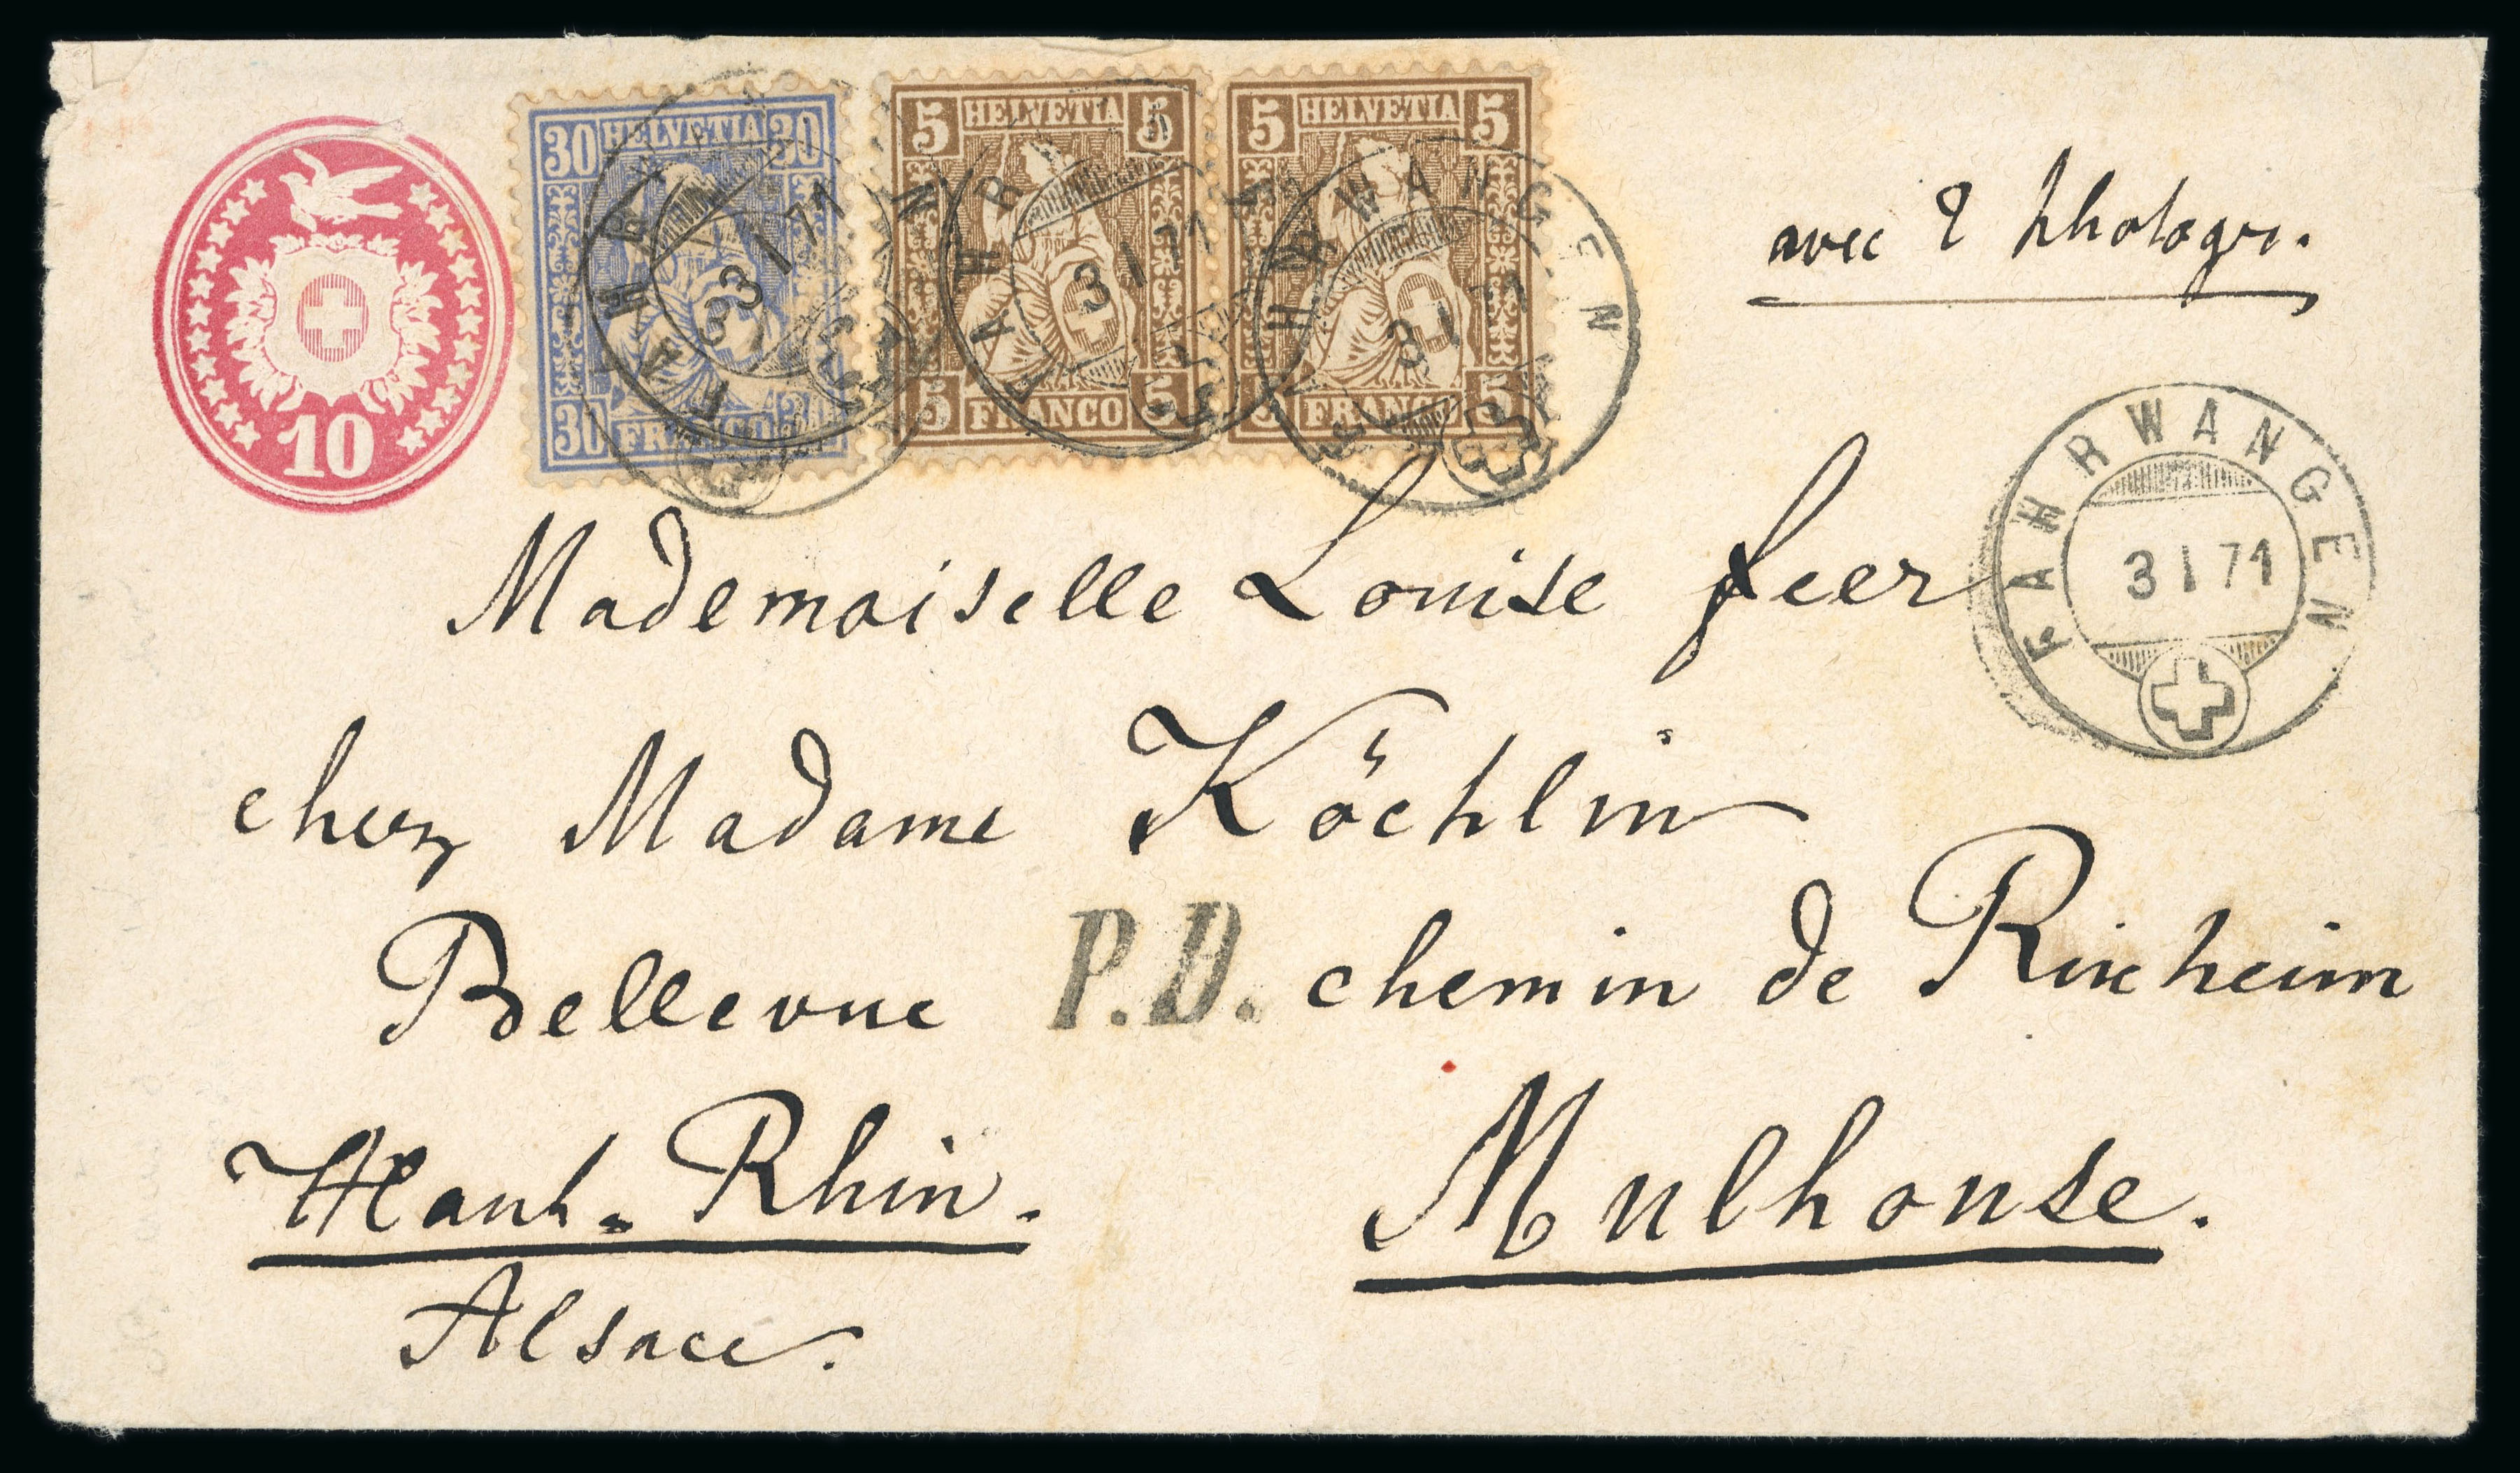 10
30 HELVETIA 30
30 FRANCO
5 HELVETIA 5
5 FRANCO 5
5 HELVETIA 5
5 FRANCO 5
FAHRWANGEN
3 I 71
FAHRWANGEN
3 I 71
FAHRWANGEN
3 I 71
avec 2 photogr.
FAHRWANGEN
3 I 71
Mademoiselle Louise feer
chez Madame Köchlin
Bellevue P.D. chemin de Rixheim
Haut-Rhin. Mulhouse.
Alsace.